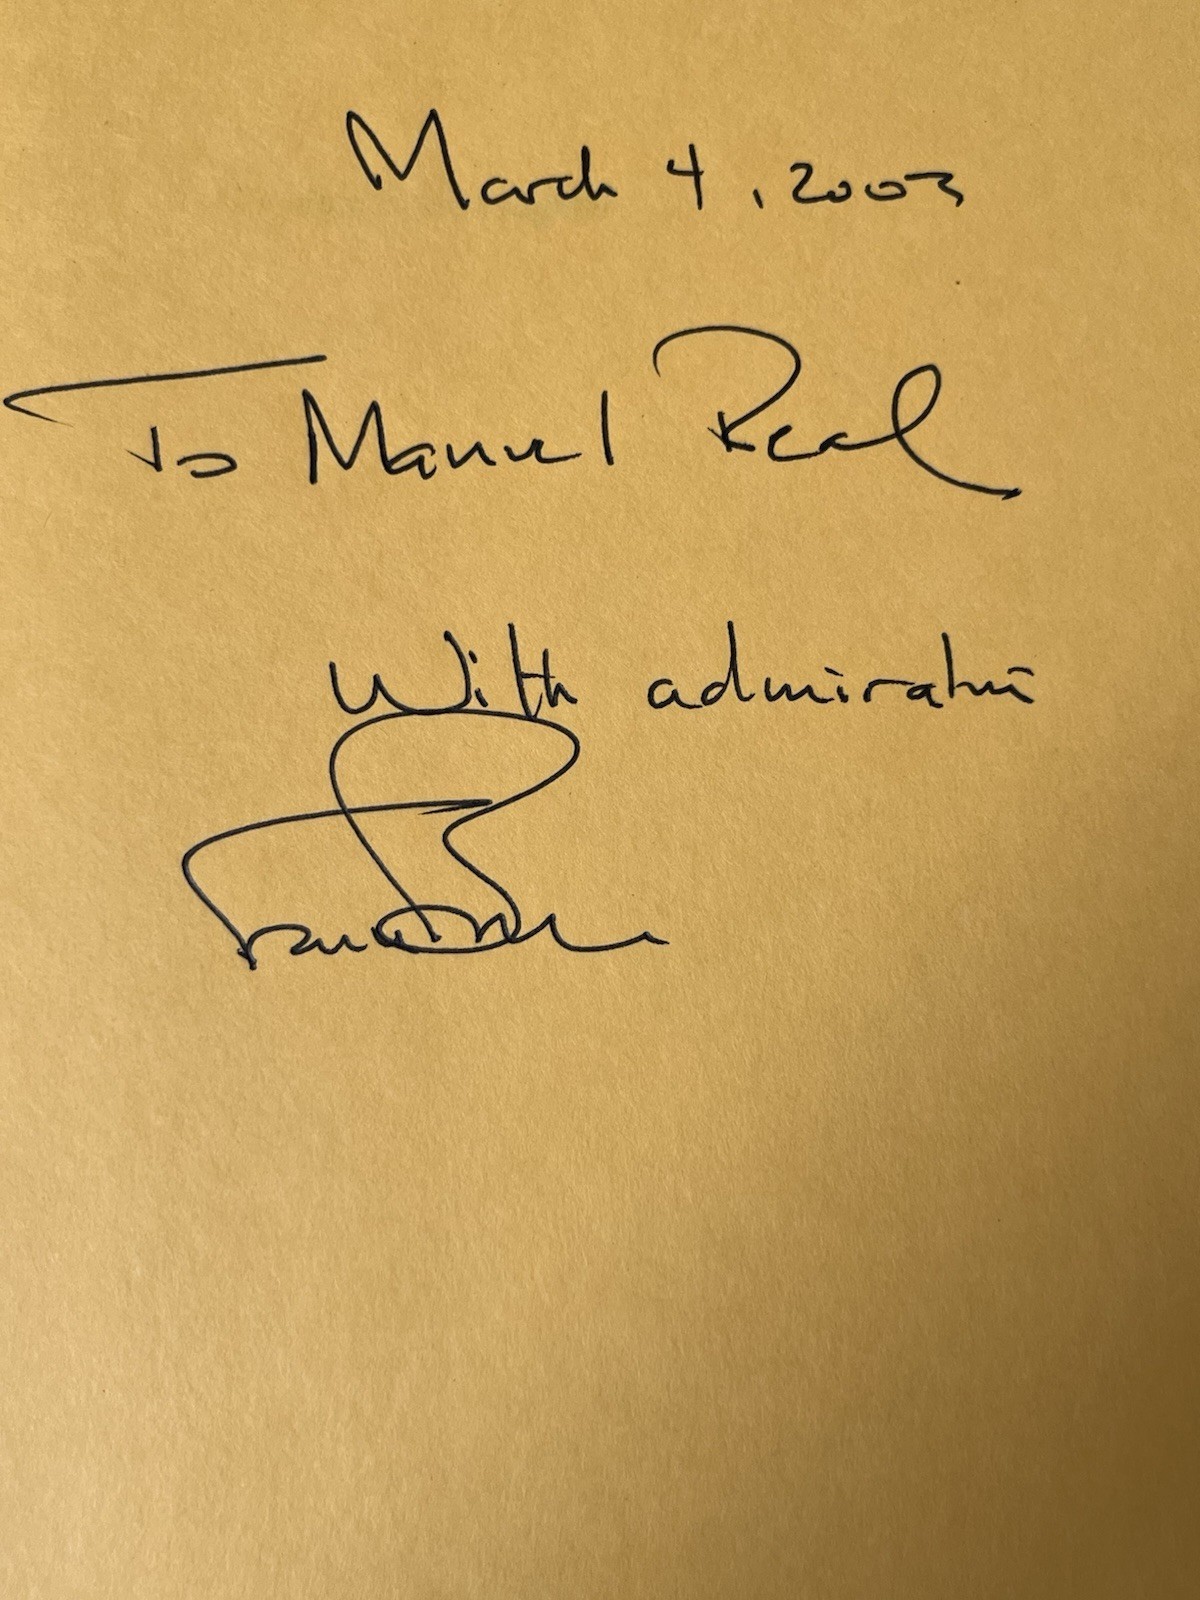 March 4, 2003
To Manuel Real
With admiration